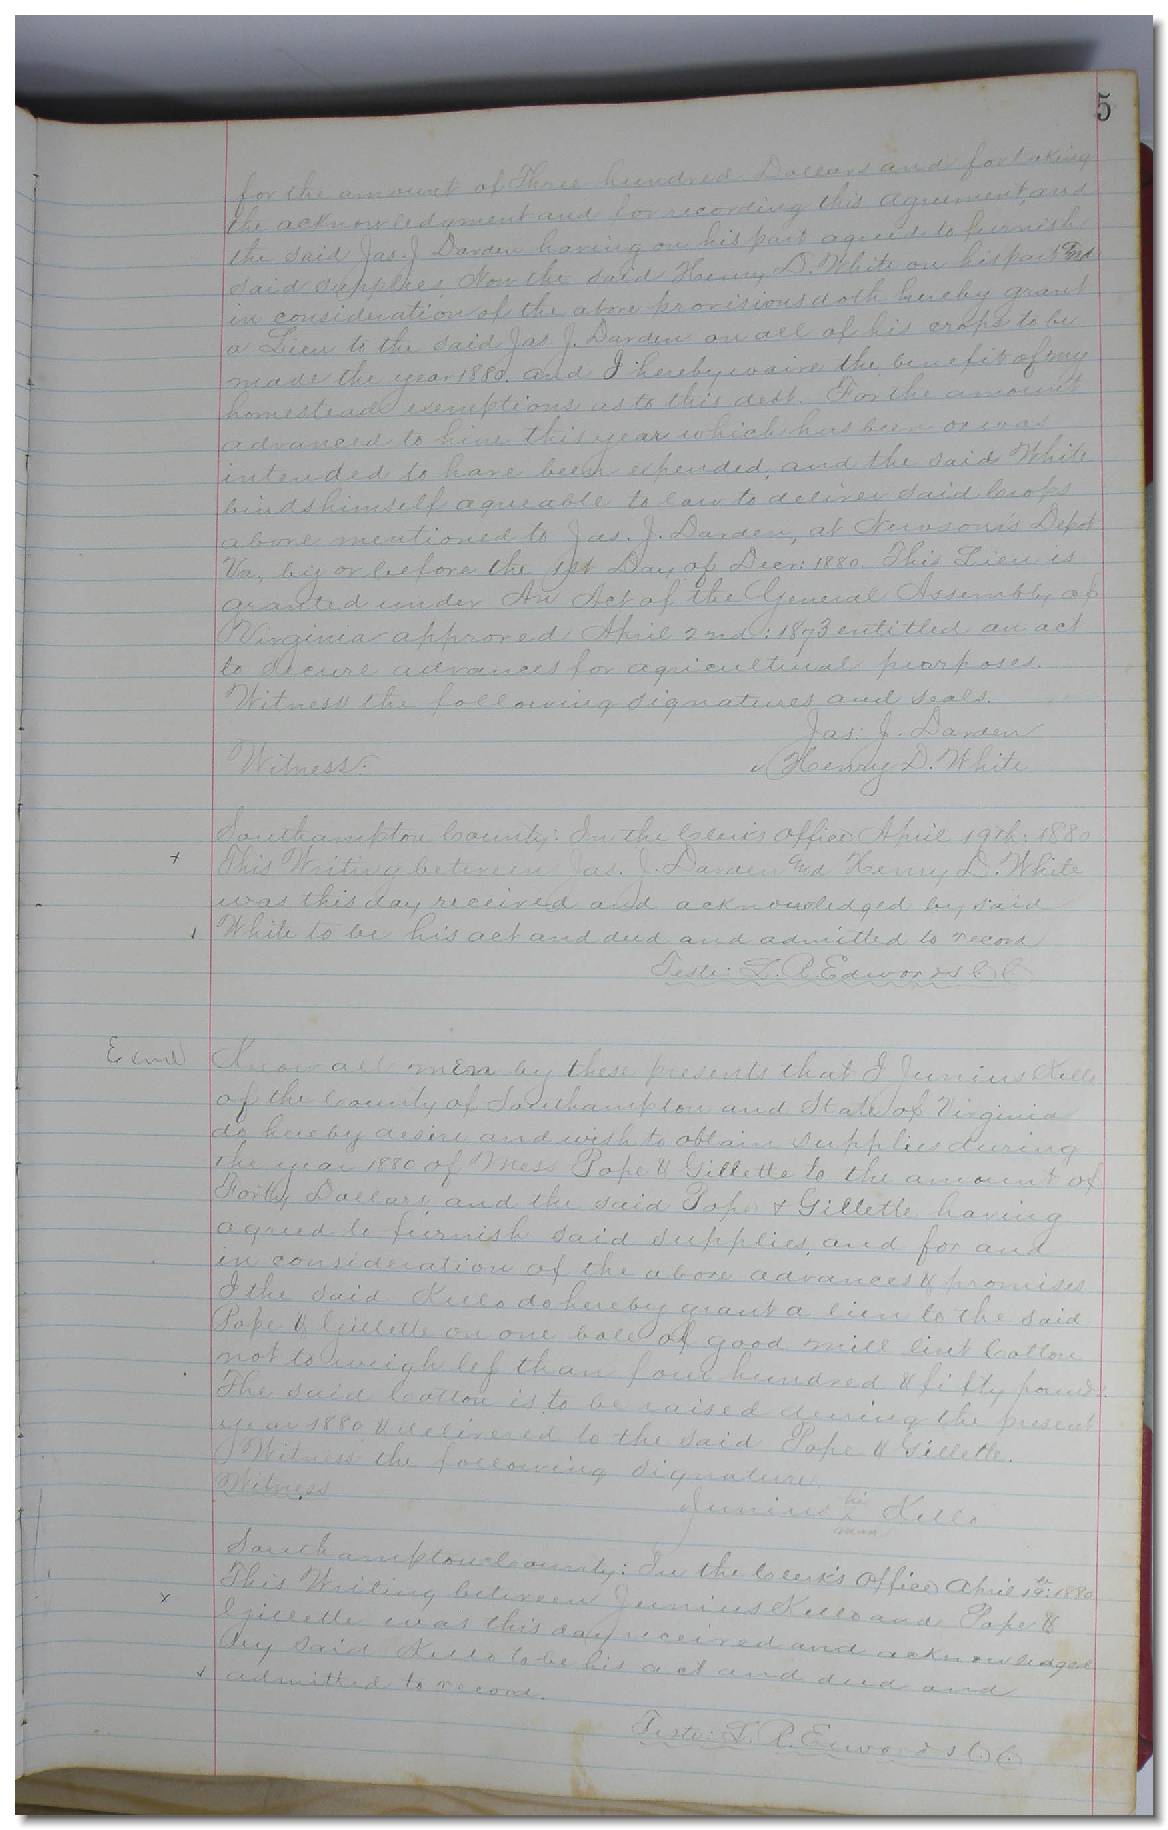 5
for the amount of Three hundred Dollars and for taking
the acknowledgment and for recording this agreement, and
the said Jas. J. Darden having on his part agreed to furnish
said supplies Now the said Henry D. White on his part and
in consideration of the above provisions doth hereby grant
a Lien to the said Jas. J. Darden on all of his crops to be
made the year 1880. and I hereby waive the benefit of my
homestead exemptions as to this debt. For the amount
advanced to him this year which has been or was
intended to have been expended, and the said White
binds himself agreable to law to deliver said Crops
above mentioned to Jas. J. Darden, at Newsom's Depot
Va, by or before the 1st Day of Decr: 1880. This Lien is
granted under An Act of the General Assembly of
Virginia approved April 2nd: 1873 entitled an act
to secure advances for agricultural purposes.
Witness the following signatures and seals.
Jas: J. Darden
Witness:
Henry D. White
Southampton County: In the Clerk's Office April 19th: 1880
This Writing between Jas. J. Darden and Henry D. White
was this day received and acknowledged by said
White to be his act and deed and admitted to record
Teste: L. R. Edwards C. C.
Know all men by these presents that I Junius Kello
of the County of Southampton and State of Virginia
do hereby desire and wish to obtain supplies during
the year 1880 of Mess Pope & Gillette to the amount of
Forty Dollars, and the said Pope & Gillette having
agreed to furnish said supplies, and for and
in consideration of the above advances & promises
I the said Kello do hereby grant a lien to the said
Pope & Gillette on one bale of good mill lint Cotton
not to weigh less than four hundred & fifty pounds.
The said Cotton is to be raised during the present
year 1880 & delivered to the said Pope & Gillette.
Witness the following signature
Witness
Junius his x mark Kello
Southampton County: In the Clerk's Office April 19th: 1880
This Writing between Junius Kello and Pope &
Gillette was this day received and acknowledged
By said Kello to be his act and deed and
admitted to record.
Teste: L. R. Edwards C. C.